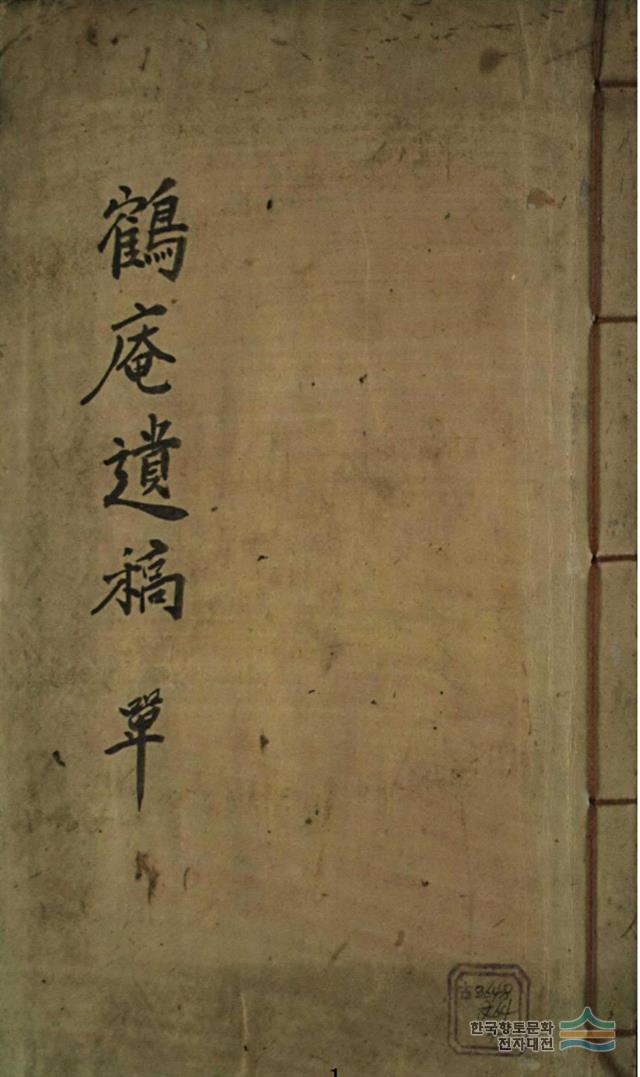 鶴庵遺稿 單
古3648
한국향토문화
전자대전
1